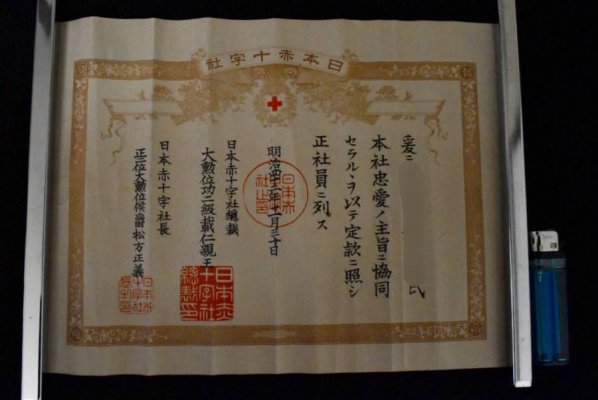 日本赤十字社
爰ニ
氏
本社忠愛ノ主旨ニ協同
セラルヽヲ以テ定款ニ照シ
正社員ニ列ス
明治四十三年十一月三十日
日本赤十字社總裁
大勲位功二級載仁親王
日本赤十字社長
正二位大勲位侯爵松方正義
日本赤十字社總裁印